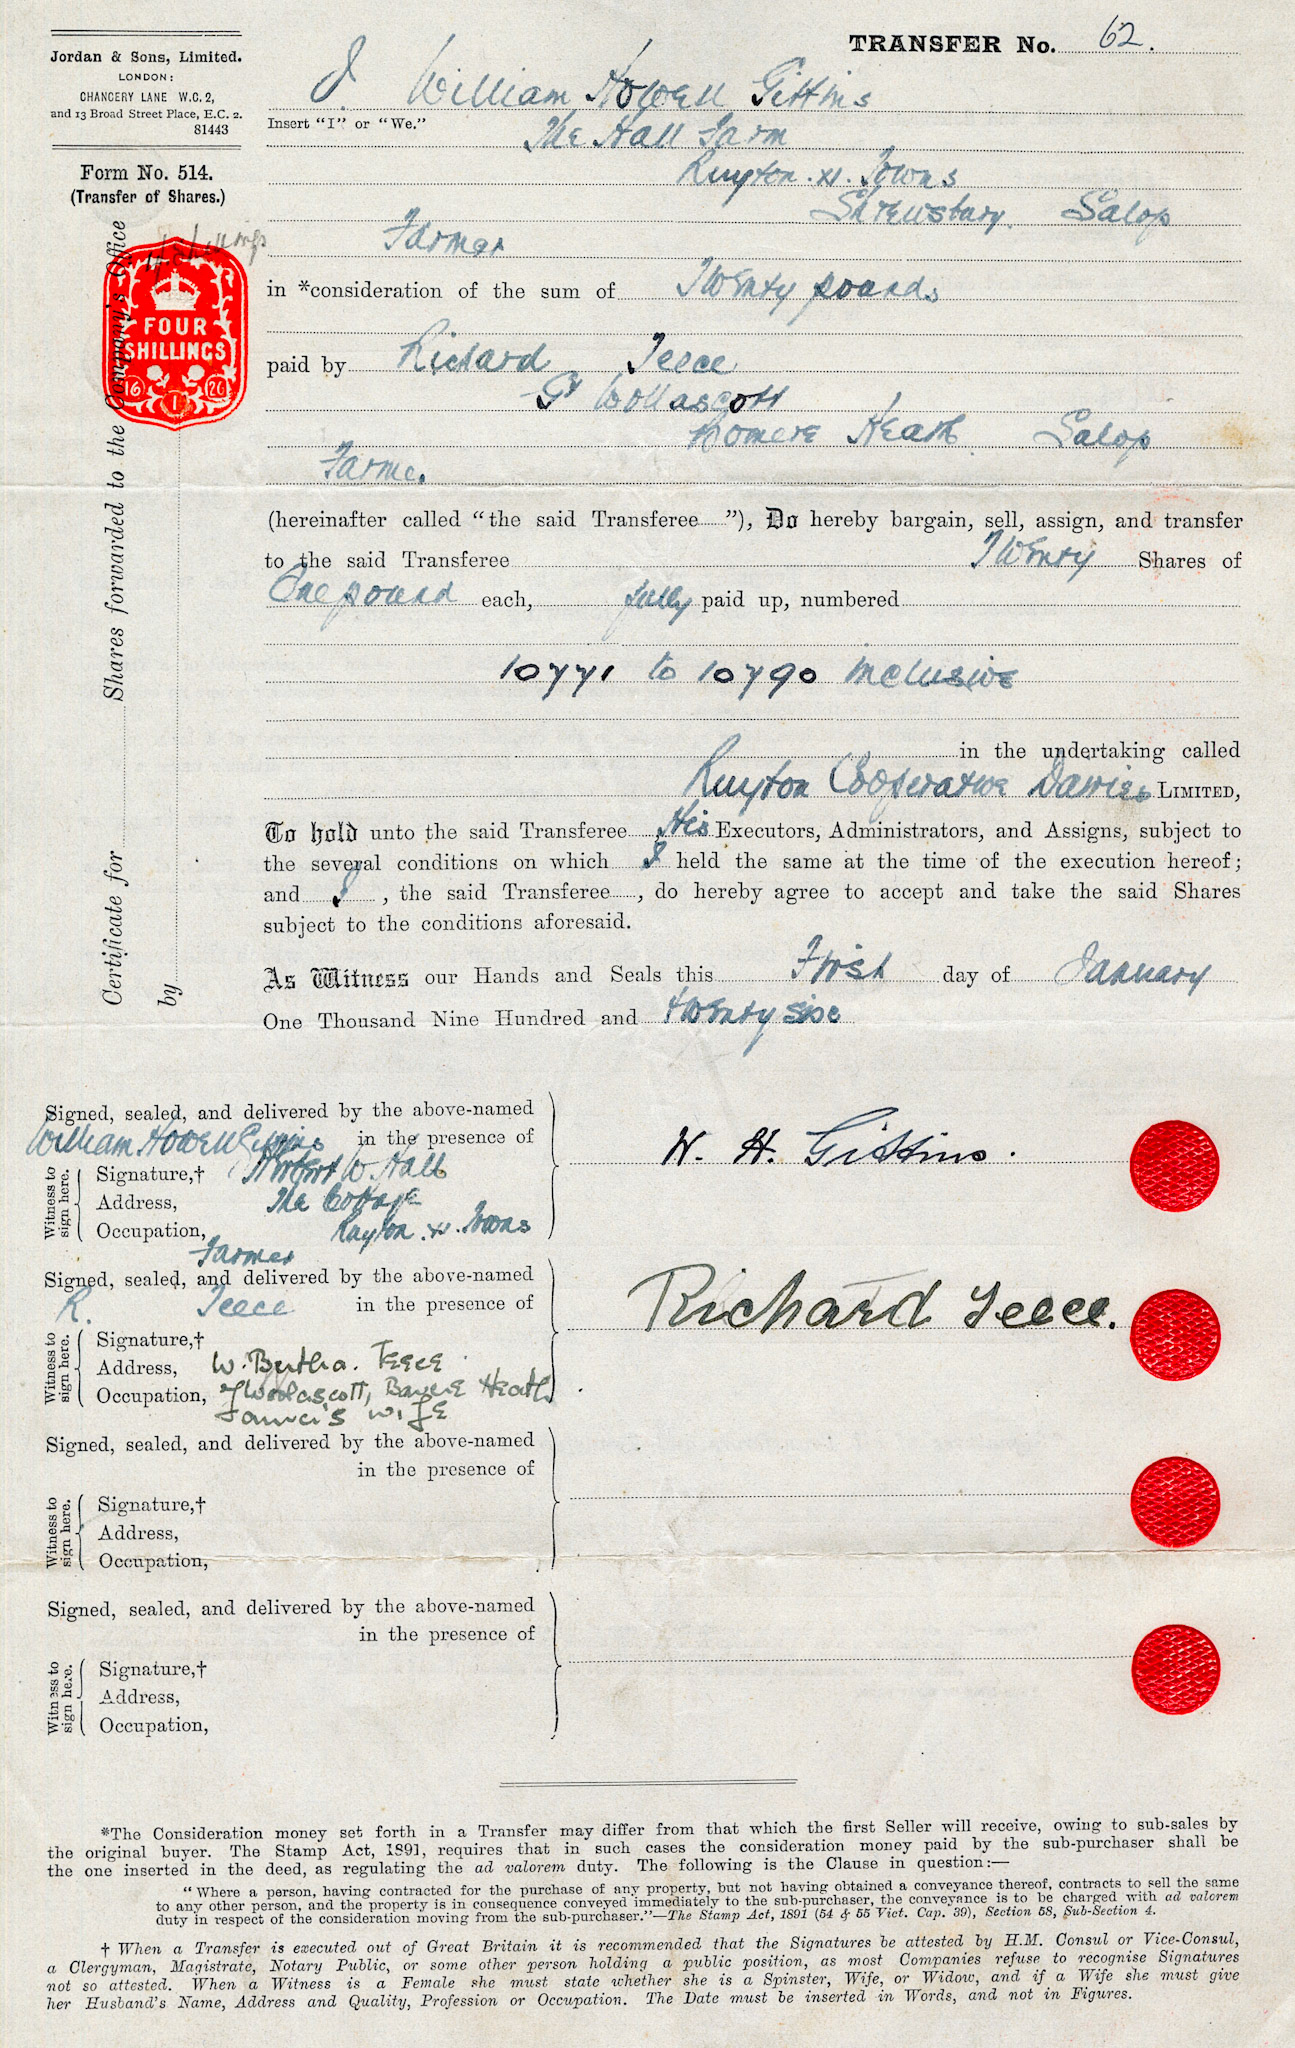 Jordan & Sons, Limited.
LONDON:
CHANCERY LANE W.C. 2,
and 13 Broad Street Place, E.C. 2.
81443
Form No. 514.
(Transfer of Shares.)
TRANSFER No. 62.
I William Howell Gittins
Insert "I" or "We."
The Hall Farm
Ruyton .xi. Towns
Shrewsbury. Salop
Farmer
4 shillings
FOUR
SHILLINGS
16 1 26
in *consideration of the sum of Twenty pounds
paid by Richard Teece
Gt Wollascott
Bomere Heath Salop
Farmer
(hereinafter called "the said Transferee"), Do hereby bargain, sell, assign, and transfer
to the said Transferee Twenty Shares of
One pound each, fully paid up, numbered
10771 to 10790 inclusive
in the undertaking called
Ruyton Cooperative Dairies LIMITED,
To hold unto the said Transferee His Executors, Administrators, and Assigns, subject to
the several conditions on which I held the same at the time of the execution hereof;
and I, the said Transferee, do hereby agree to accept and take the said Shares
subject to the conditions aforesaid.
As Witness our Hands and Seals this First day of January
One Thousand Nine Hundred and twenty six
Certificate for Shares forwarded to the Company's Office
by
Signed, sealed, and delivered by the above-named
William Howell Gittins in the presence of
W. H. Gittins.
Witness to sign here.
Signature,† Herbert W Hall
Address, The Cottage
Occupation, Ruyton .xi. Towns
Farmer
Signed, sealed, and delivered by the above-named
R. Teece in the presence of
Richard Teece.
Witness to sign here.
Signature,†
Address, W. Bertha. Teece
Occupation, Wollascott, Heath
Farmer's wife
Signed, sealed, and delivered by the above-named
in the presence of
Witness to sign here.
Signature,†
Address,
Occupation,
Signed, sealed, and delivered by the above-named
in the presence of
Witness to sign here.
Signature,†
Address,
Occupation,
*The Consideration money set forth in a Transfer may differ from that which the first Seller will receive, owing to sub-sales by
the original buyer. The Stamp Act, 1891, requires that in such cases the consideration money paid by the sub-purchaser shall be
the one inserted in the deed, as regulating the ad valorem duty. The following is the Clause in question:—
"Where a person, having contracted for the purchase of any property, but not having obtained a conveyance thereof, contracts to sell the same
to any other person, and the property is in consequence conveyed immediately to the sub-purchaser, the conveyance is to be charged with ad valorem
duty in respect of the consideration moving from the sub-purchaser."—The Stamp Act, 1891 (54 & 55 Vict. Cap. 39), Section 58, Sub-Section 4.
† When a Transfer is executed out of Great Britain it is recommended that the Signatures be attested by H.M. Consul or Vice-Consul,
a Clergyman, Magistrate, Notary Public, or some other person holding a public position, as most Companies refuse to recognise Signatures
not so attested. When a Witness is a Female she must state whether she is a Spinster, Wife, or Widow, and if a Wife she must give
her Husband's Name, Address and Quality, Profession or Occupation. The Date must be inserted in Words, and not in Figures.